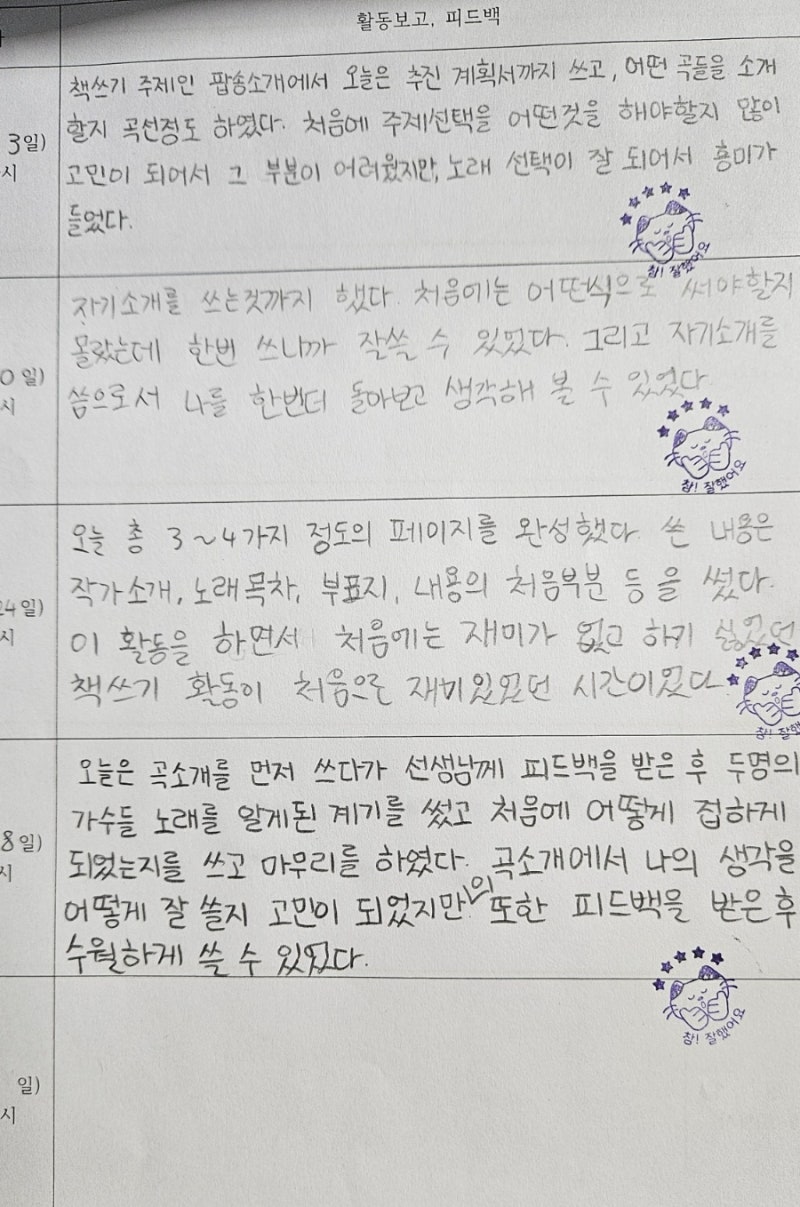 활동보고, 피드백
책쓰기 주제인 팝송소개에서 오늘은 추진 계획서까지 쓰고, 어떤 곡들을 소개
할지 곡선정도 하였다. 처음에 주제선택을 어떤것을 해야할지 많이
3일)
시
고민이 되어서 그 부분이 어려웠지만, 노래 선택이 잘 되어서 흥미가
들었다.
참! 잘했어요
자기소개를 쓰는것까지 했다. 처음에는 어떤식으로 써야할지
몰랐는데 한번 쓰니까 잘쓸 수 있었다. 그리고 자기소개를
0일)
시
씀으로서 나를 한번더 돌아보고 생각해 볼 수 있었다.
참! 잘했어요
오늘 총 3~4가지 정도의 페이지를 완성했다. 쓴 내용은
작가소개, 노래목차, 부표지, 내용의 처음부분 등 을 썼다.
24일)
시
이 활동을 하면서 처음에는 재미가 없고 하기 싫었던
책쓰기 활동이 처음으로 재미있었던 시간이었다.
참! 잘했
오늘은 곡소개를 먼저 쓰다가 선생님께 피드백을 받은 후 두명의
가수들 노래를 알게된 계기를 썼고 처음에 어떻게 접하게
8일)
시
되었는지를 쓰고 마무리를 하였다. 곡소개에서 나의 생각을
어떻게 잘 쓸지 고민이 되었지만 이 또한 피드백을 받은후
수월하게 쓸 수 있었다.
참! 잘했어요
일)
시